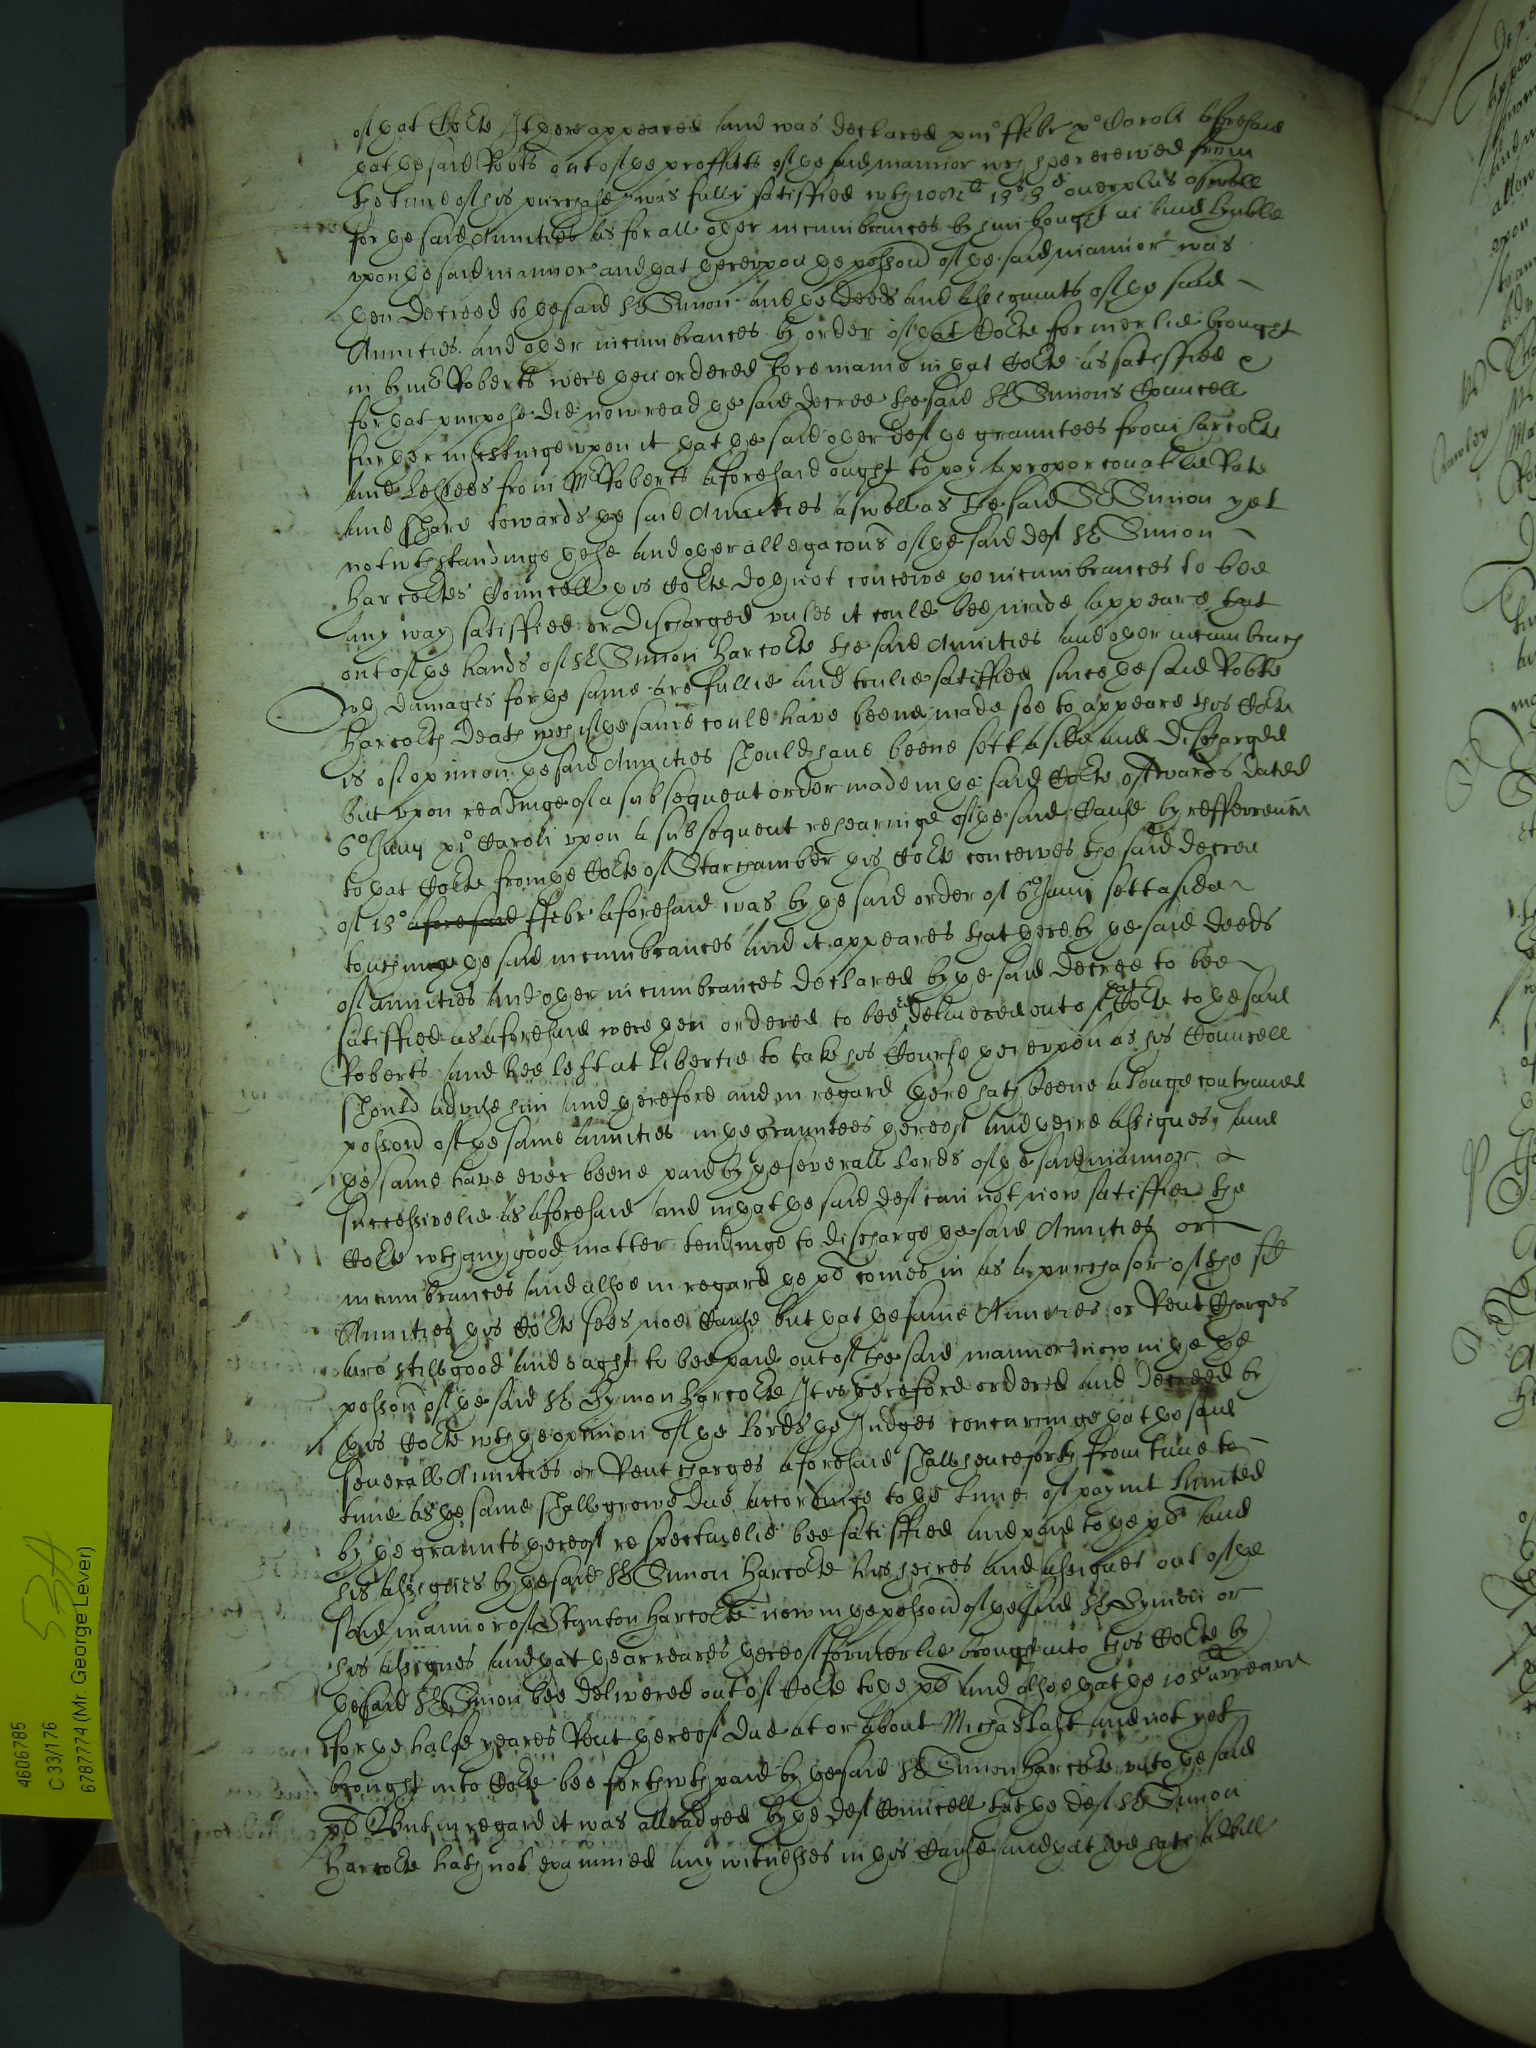 of that Co:rte It there appeared and was declared xiii° ffebr p° Caroli aforesaid
that the said Rob:ts out of the proffitts of the said mannor w:ch hee received from
the time of his purchase was fully satisfied w:th 19:s 3:d overplus aswell
for the said Annities as for all other incumbrances by him bought in and lyable
upon the said mannor and that therevpon the poss:on of the said mannor was
then decreed to the said S:r Simon and the deeds and assignm:ts of the said
Annities and other incumbrances by order of that Co:rte formerlie brought
in by m:r Roberts were then ordered to remaine in that Co:rte as satisfied &
for that purpose did now read the said decree the said S:r Simons Councell
further insistinge vpon it that the said other def:ts the grauntees from Harco:rte
and Lessees from M:r Roberts aforesaid ought to pay a proporc̄onable Rate
and share towards the said Annities aswell as the said S:r Simon yet
notw:thstandinge these and other allegac̄ons of the said def:t S:r Simon
Harco:rtes Councell this Co:rte doth not conceive the incumbrances to bee
any way satisfied or discharged vnles it could bee made appeare that
out of the hands of S:r Simon Harco:rte the said Annities and other incumbrnc:s
and damages for the same are fullie and trulie satisfied since the said Rob:te
Harco:rts death w:ch if the same could have beene made soe to appeare this Co:rte
is of opinion the said Annities should have beene sett aside and discharged
but vpon readinge of a subsequent order made in the said Co:rte aftwards dated
6° Junij p° Caroli vpon a subsequent rehearinge of the said Cause by refferrence
to that Co:rte from the Co:rte of Starchamber this Co:rte conceives the said decree
of 13° aforesaid ffebr aforesaid was by the said order of 6° Junij sett aside
touchinge the said incumbrances and it appeares that thereby the said deeds
of annities and other incumbrances declared by the said decree to bee
satisfied as aforesaid were then ordered to bee delivered out of that Co:rte to the said
Roberts and hee left at libertie to take his Course therevpon as his Councell
should advise him and therefore and in regard there hath beene a longe contynued
poss:on of the same annities in the grauntees thereof and theire assignes and
the same have ever beene paid by the severall Lords of the said mannor
successivelie as aforesaid and in that the said def:t can not now satisfie the
Co:rte w:th any good matter tendinge to discharge the said Annities or
incumbrances and alsoe in regard the p:lt comes in as a purchasor of the s:d
Annities this Co:rte sees noe Cause but that the same Annities or Rent Charges
are still good and ought to bee paid out of the said mannor now in the the
poss:on of the said S:r Symon Harco:rte It is therefore ordered and decreed by
this Co:rte w:th the opinion of the Lords the Judges concurringe that the said
severall Annities or Rent charges aforesaid shall henceforth from time to
time as the same shall growe due accordinge to the time of paym:t limited
by the graunts thereof respectivelie bee satisfied and paid to the p:lt and
his assignes by the said S:r Simon Harco:rte his heires and assignes out of the
said mannor of Stanton Harco:rte now in the poss:on of the said S:r Symon or
his assignes and that the arreares thereof formerlie brought into this Co:rte by
the said S:r Simon bee delivered out of Co:rte to the p:lt and alsoe that the arreare
for the halfe yeares Rent thereof due at or about Mich:as last and not yet
brought into Co:rte bee forthw:th paid by the said S:r Simon Harco:rte vnto the said
p:lt But in regard it was alleadged by the def:ts Councell that the def:t S:r Simon
Harco:rte hath not examined any witnesses in this Cause and that hee hath a Bill
4606785
C 33/176
6787774 (Mr. George Lever)